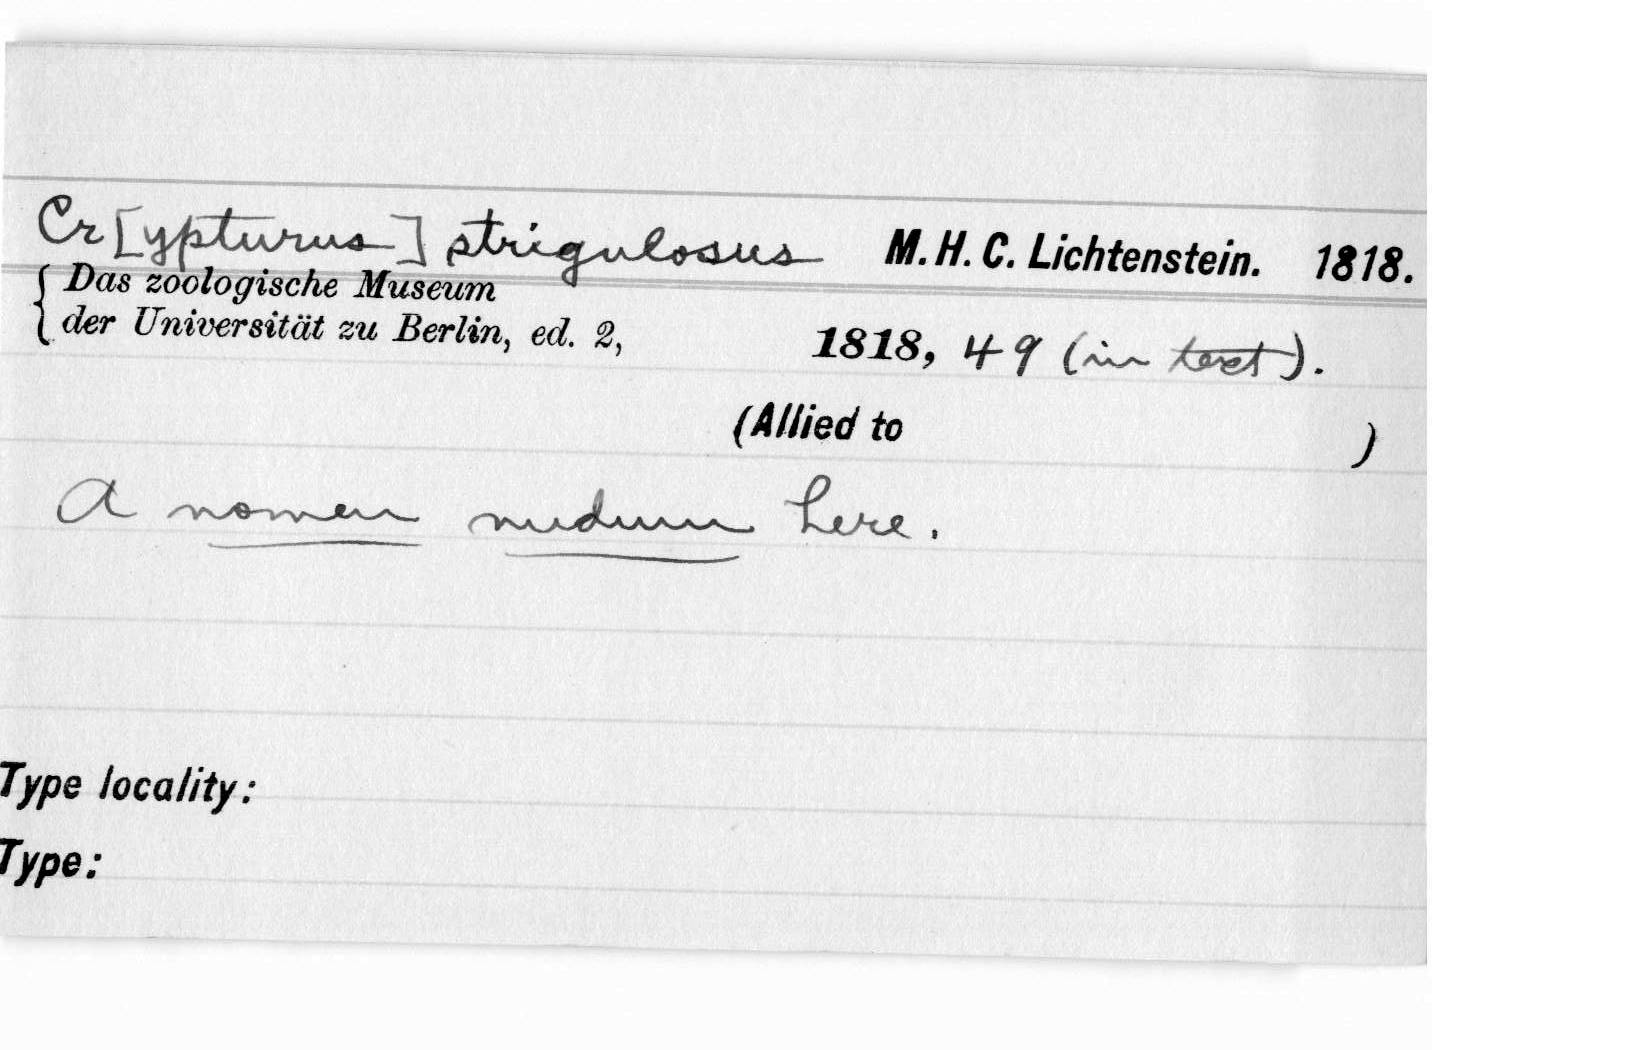 Cr[ypturus] strigulosus M. H. C. Lichtenstein. 1818.
{ Das zoologische Museum
der Universität zu Berlin, ed. 2, 1818, 49 (in text).
(Allied to )
A nomen nudum here.
Type locality:
Type: